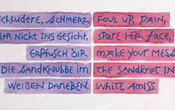 SCHLUDERE, SCHMERZ,
IHR NICHT INS GESICHT,
ERPFUSCH DIR
DIE SANDKNUBBE IM
WEIßEN DANEBEN.
FOUL UP, PAIN,
SPARE HER FACE,
MAKE YOUR MESS
THE SANDKNOT IN
WHITE AMISS.